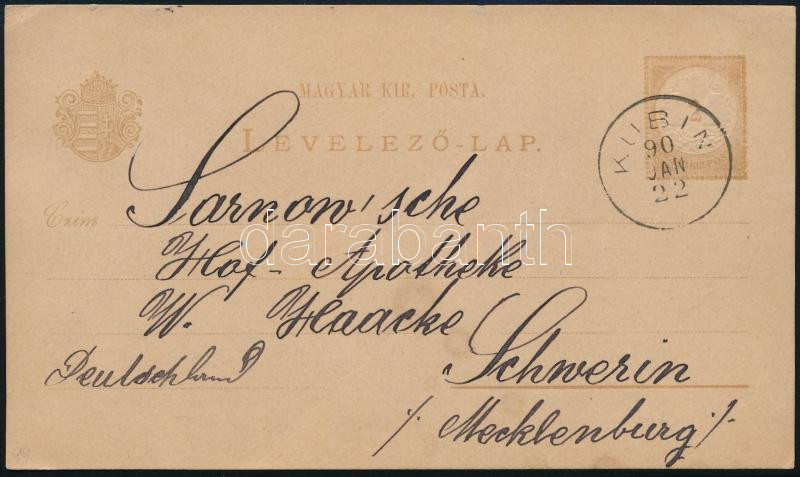 MAGYAR KIR. POSTA.
LEVELEZŐ-LAP.
KUBIN
90
JAN
22
Czím
Sarnow'sche
Hof-Apotheke
W. Haacke
Deutschland
Schwerin
/. Mecklenburg /.
darabanth